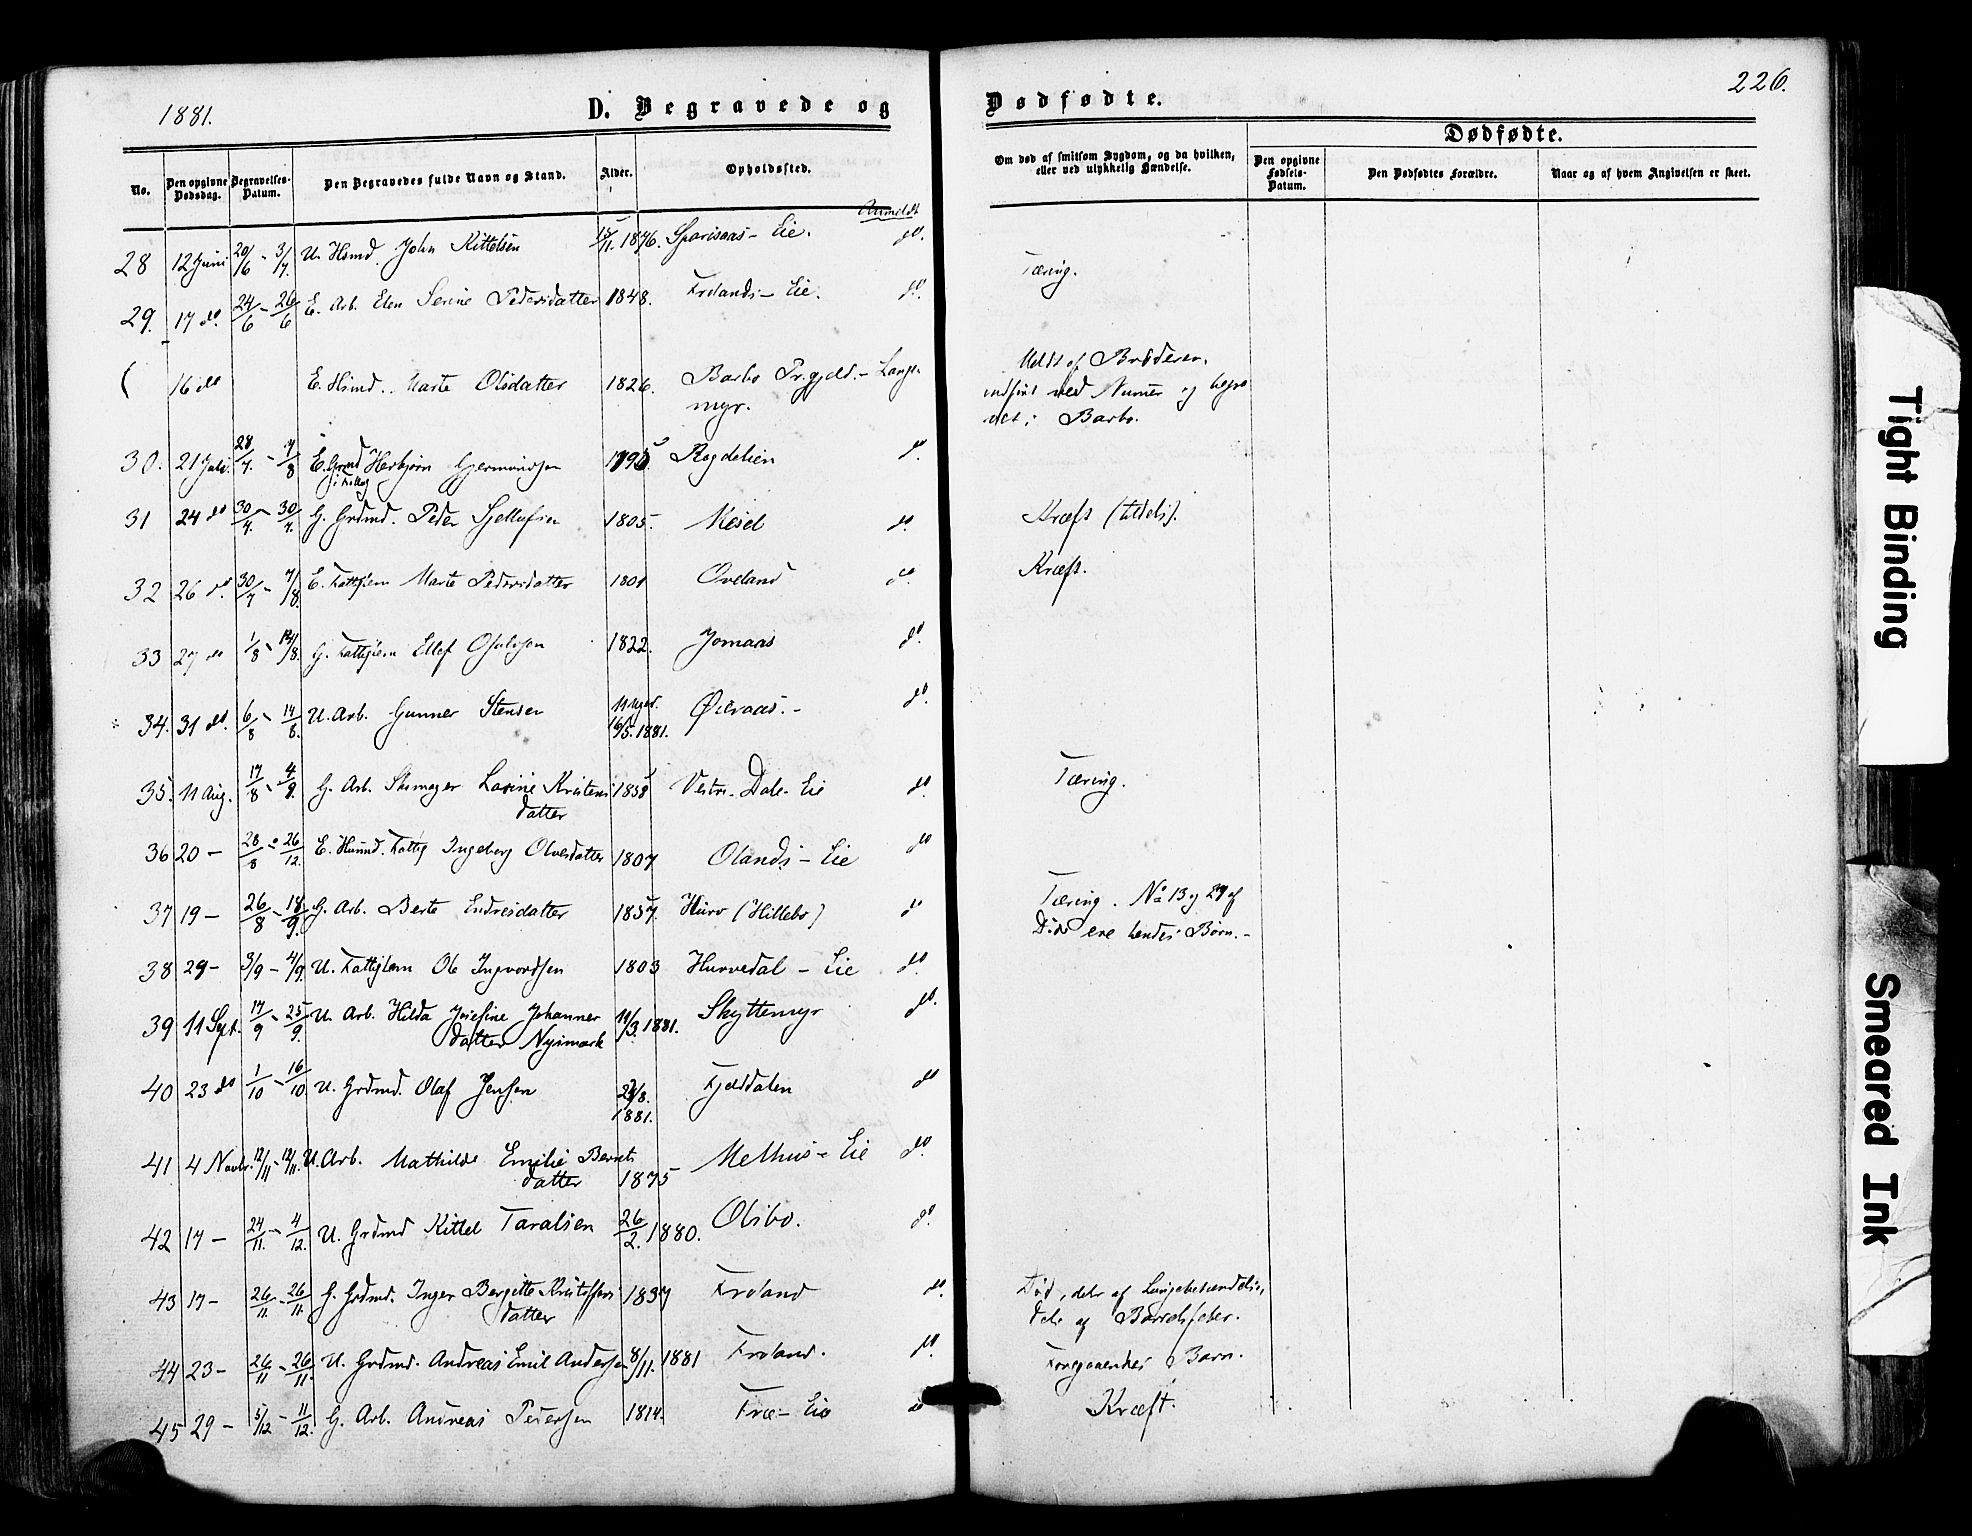 1881.
D. Begravede og Dødfødte.
226.
Dødfødte.
No.
Den opgivne Dødsdag.
Begravelses-Datum.
Den Begravedes fulde Navn og Stand.
Alder.
Opholdssted.
Om død af smitsom Sygdom, og da hvilken,
eller ved ulykkelig Hændelse.
Den opgivne Fødsels-Datum.
Den Dødfødtes Forældre.
Naar og af hvem Angivelsen er skeet.
Anmeldt
28 12 Juni 20/6 - 3/7. U. Hsmd. John Kittelsen 1876. Eie. do.
Tæring.
29. 17 do. 24/6 - 26/6 E. Arb. Elen Serine Pedersdatter 1848. Frolands - Eie. do.
16 do E. Hsmd. Marte Olsdatter 1826. Barbo Prgjeld. - Lang-
myr.
Meldt af Broderen,
indført ved Numer og begra
det i Barbo.
30. 21 Juli. 28/7. - 7/8 E. Grmd Herbjørn Gjermundsen Rogdelien do
31 24 do 30/7. - 30/7. G. Grdmd. Peder 1805. Mesel do.
Kræft (tildels).
32 26 do. 30/7 - 7/8. E. Fattiglem Marte Pedersdatter 1801 Oveland do.
Kræft.
33 27 do 1/8 - 14/8. G. Fattiglem Ellef Osulvsen 1822. Jomaas do.
34. 31 do. 6/8 - 14/8. U. Arb. Gunner Stensen 16/5. 1881. do.
35. 11 Aug. 17/8 - 4/9. G. Arb. Skomager Lovine Kristens
datter 1858 Vestre - Dale - Eie do.
Tæring.
36 20 - 28/8 - 26/12. E. Hsmd. Fattig Ingeborg Olvesdatter 1807 Olands - Eie do
37 19 - 26/8 - 18/9. G. Arb. Berte Endresdatter 1857. Hurv (Hillebo) do
Tæring. No 13 og 29 af
Døde ere hendes Børn. -
38 29 - 3/9 - 4/9. U. Fattiglem Ole Ingvordsen 1803 Hurvedal - Eie do.
39 11 Sept. 17/9 - 25/9. U. Arb. Hilda Josefine Johannes
datter Nysmark 14/3. 1881. Skyttemyr do.
40 23 do 1/10 - 16/10 U. Grdmd. Olaf Jensen 1881. Fjelddalen do
41 4 Novbr. 12/11 - 12/11. U. Arb. Mathilde Emilie Bernts
datter 1875 - Melhus - Eie do.
42 17 - 24/11. - 4/12. U. Grdmd Kittel Taralsen 26/2. 1880. Olsbo. do.
43 17 - 26/11. - 26/11. G. Grdmd. Inger Bergitte Kristoffers
datter 1837 Froland do.
Død, dels af Lungebetændelse,
dels af Barselsfeber.
44 23 - 26/11 - 26/11. U. Grdmd. Andreas Emil Andersen 8/11. 1881 Froland. do.
Foregaaendes Barn.
45 29 - 5/12 - 11/12. G. Arb. Andreas Pedersen 1814. Fræ - Eie do
Kræft.
Tight Binding
Smeared Ink